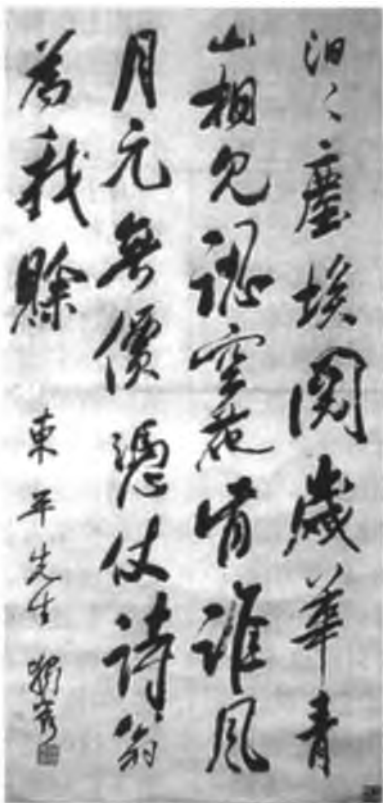 汩〻塵埃閱歲華青
山相見認空花肯誰風
月元無價憑仗詩翁
為我賒
東平先生 獨秀